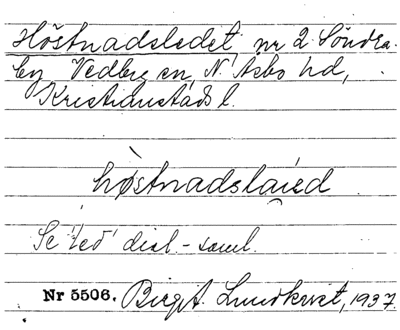 Höstnadsledet, nr 2 Söndra-
by Vedby sn, N. Åsbo hd,
Kristianstads l.
hø̀stnadslai̯ed
Se 'led' dial.-saml.
Nr 5506. Birgit Lundkvist, 1937.